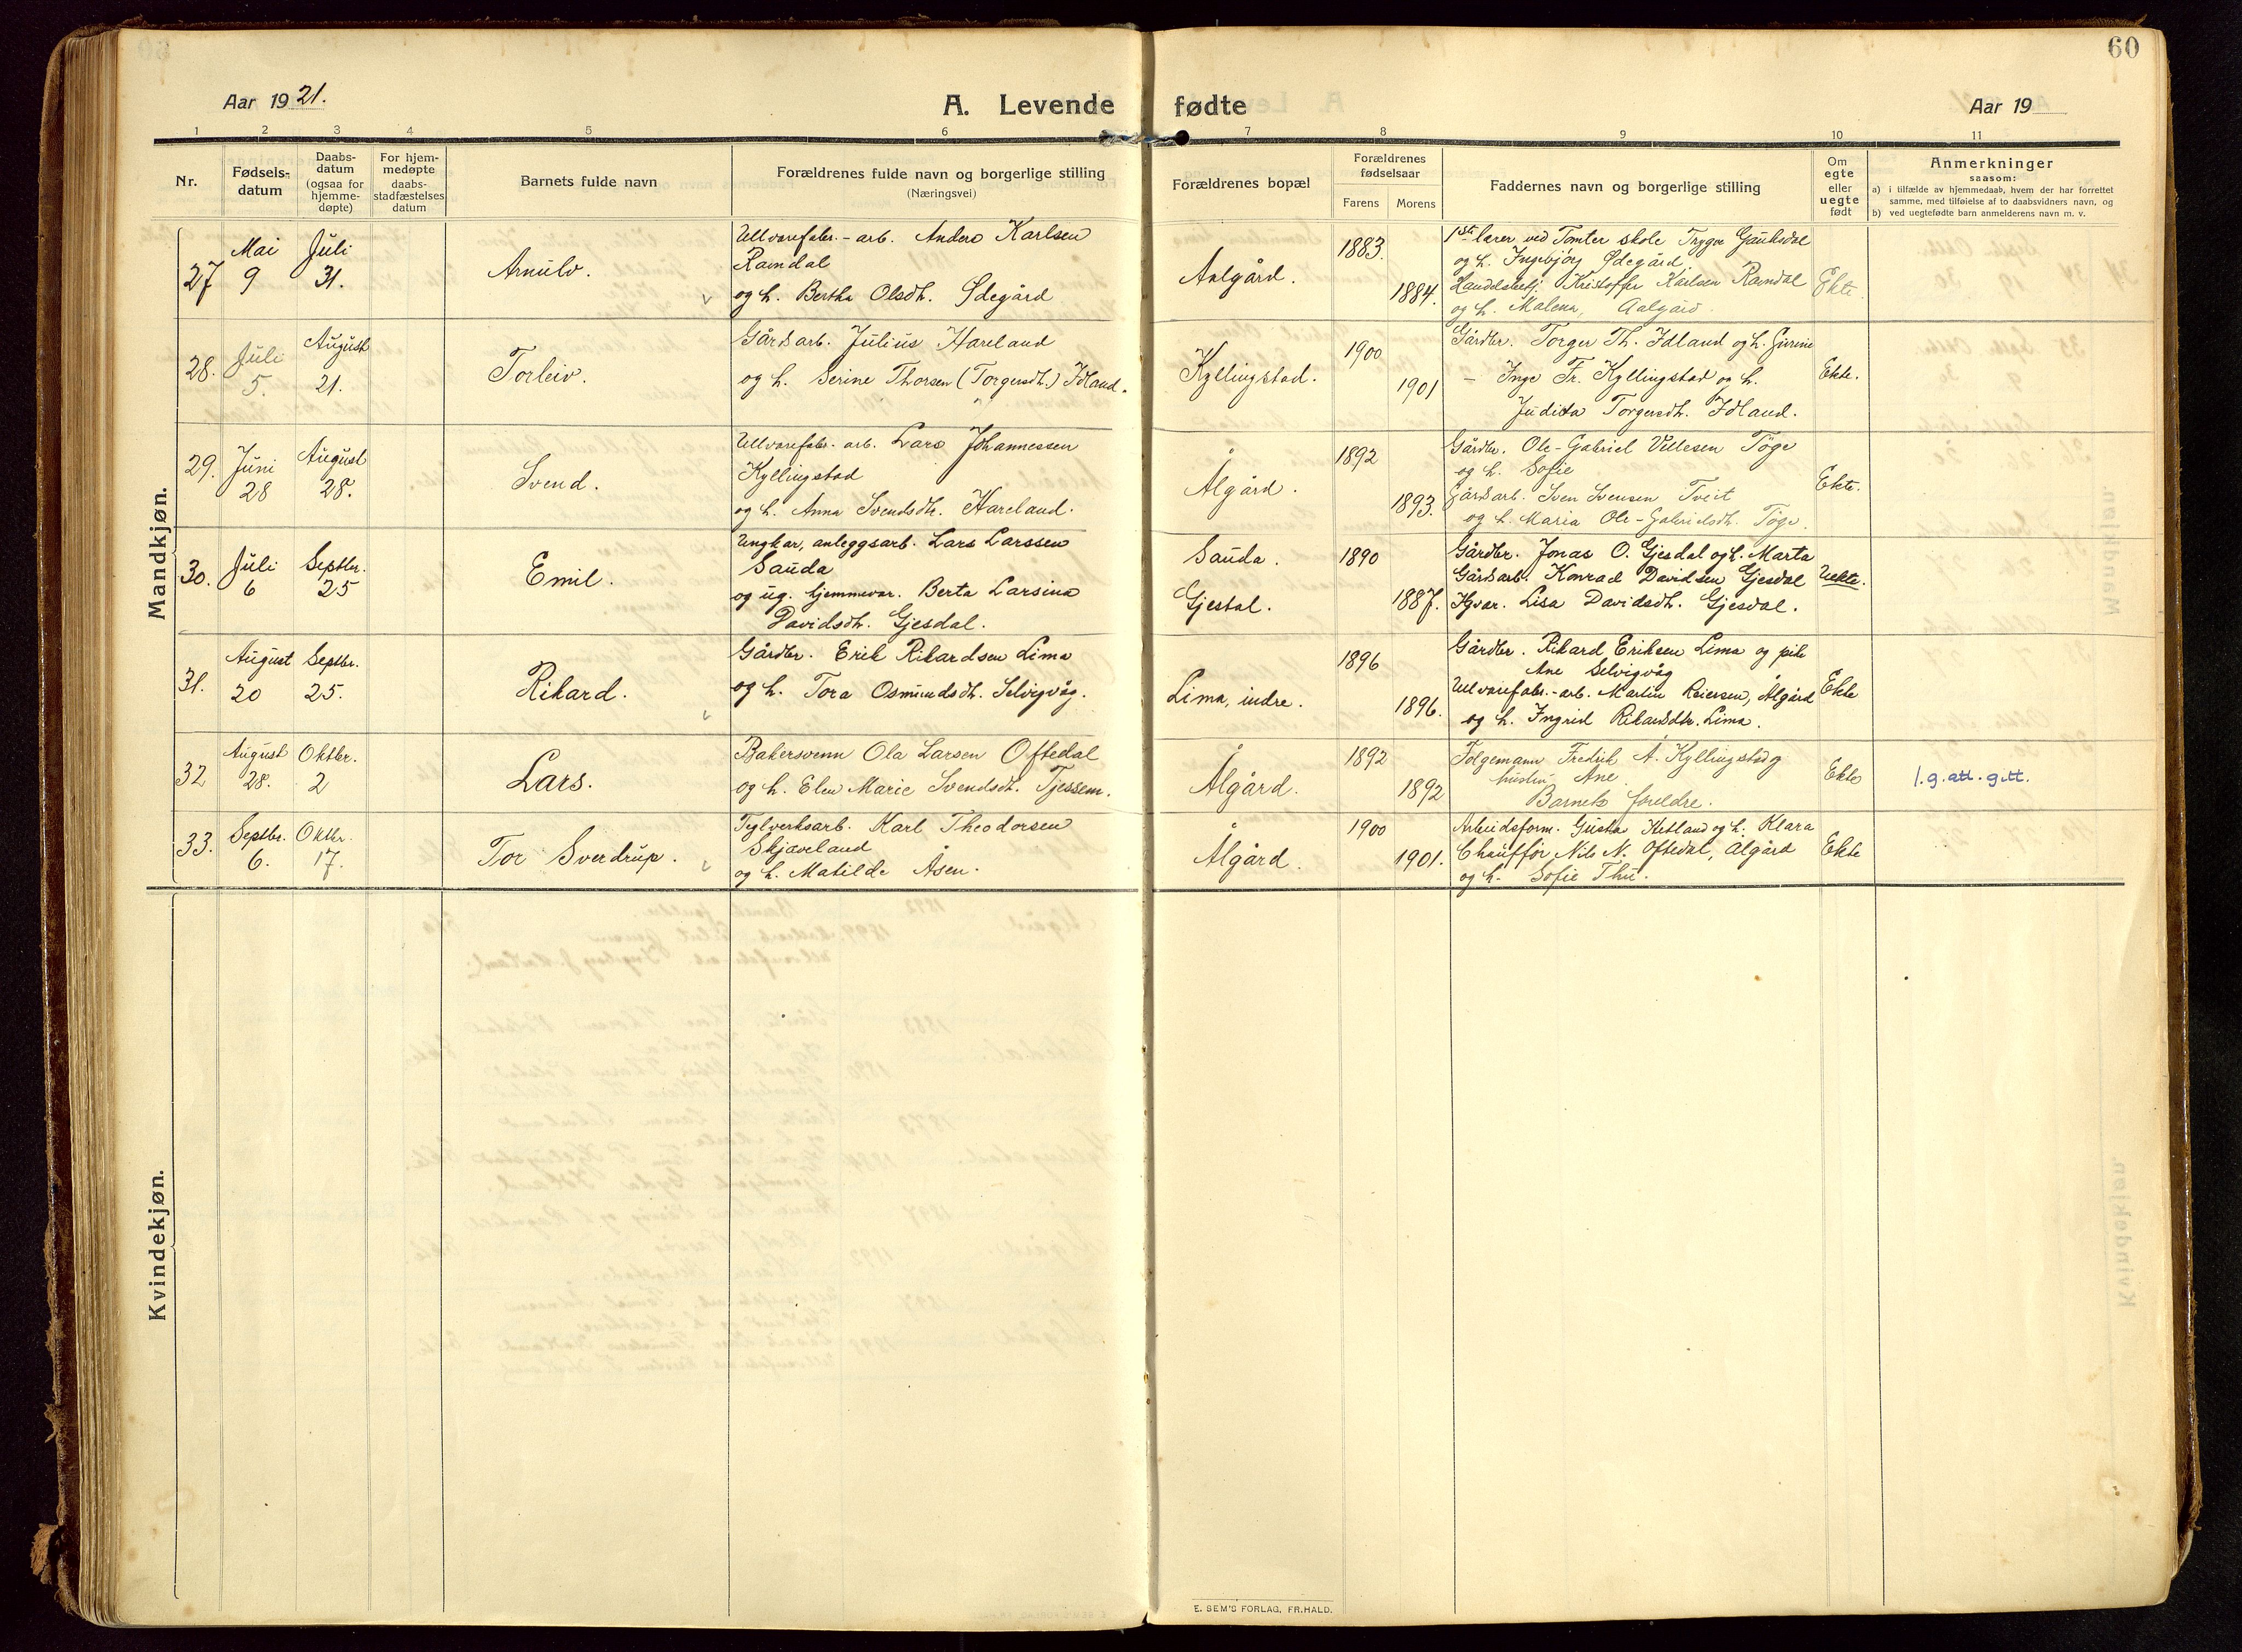 60
Aar 1921.
A. Levende fødte
Aar 19
1 2 3 4 5 6 7 8 9 10 11
Nr.
Fødsels-
datum
Daabs-
datum
(ogsaa for
hjemme-
døpte)
For hjem-
medøpte
daabs-
stadfæstelses
datum
Barnets fulde navn
Forældrenes fulde navn og borgerlige stilling
(Næringsvei)
Forældrenes bopæl
Forældrenes
fødselsaar
Farens Morens
Faddernes navn og borgerlige stilling
Om
egte
eller
uegte
født
Anmerkninger
saasom:
a) i tilfælde av hjemmedaab, hvem der har forrettet
samme, med tilføielse av to daabsvidners navn, og
b) ved uegtefødte barn anmelderens navn m. v.
Mandkjøn.
27
Mai
9
Juli
31.
Arnulv.
Ullvarefabr.-arb. Anders Karlsen
Ramdal
og h. Bertha Olsdh. Ødegård
Aalgård.
1883.
1884.
1ste lærer ved Tomter skole Trygve Gauksdal
og h. Ingebjørg Ødegård
Handelsbetj. Kristoffer Karlsen Ramdal
og h. Malena, Aalgård.
Ekte
28.
Juli
5.
August
21.
Torleiv.
Gårdsarb. Julius Hareland
og h. Serine Thorsen (Torgersdh.) Idland.
Kyllingstad.
1900
1901
Gårdbr. Torger Th. Idland og h. Gurine
- Inge Fr. Kyllingstad og h.
Judita Torgersdh. Idland.
Ekte.
29.
Juni
28
August
28.
Svend.
Ullvarefabr. arb. Lars Johannessen
Kyllingstad
og h. Anna Svendsdh. Hareland.
Ålgård.
1892
1893.
Gårdbr. Ole-Gabriel Villesen Tøge
og h. Sofie
Gårdsarb. Sven Svensen Tveit
og h. Maria Ole-Gabrielsdh. Tøge.
Ekte.
30.
Juli
6
Septbr.
25
Emil.
Ungkar, anleggsarb. Lars Larssen
Sauda
og ug. hjemmevær. Berta Larsina
Davidsdh. Gjesdal.
Sauda.
Gjestal.
1890
1887.
Gårdbr. Jonas O. Gjesdal og h. Marta
Gårdsarb. Konrad Davidsen Gjesdal
Hjvær. Lisa Davidsdh. Gjesdal.
Uekte.
31.
August
20
Septbr.
25.
Rikard.
Gårdbr. Erik Rikardsen Lima
og h. Tora Osmundsdh. Selvigvåg.
Lima, indre.
1896
1896.
Gårdbr. Rikard Eriksen Lima og pike
Ane Selvigvåg
Ullvarefabr.-arb. Martin Reiersen, Ålgård
og h. Ingrid Rikardsdtr. Lima.
Ekte
32
August
28.
Oktbr.
2
Lars.
Bakersvenn Ola Larsen Oftedal
og h. Elen Marie Svendsdt. Tjessem.
Ålgård.
1892
1892
Folgemann Fredrik A. Kyllingstad og
hustru Ane.
Barnets foreldre.
Ekte
l.g.att.gitt.
33.
Septbr.
6.
Oktbr.
17.
Tor Sverdrup.
Teglverksarb. Karl Theodorsen
Skjæveland
og h. Matilde Åsen.
Ålgård.
1900
1901.
Arbeidsform. Gustav Hetland og h. Klara
Chauffør Nils N. Oftedal, Ålgård
og h. Sofie Thu.
Ekte
Kvindekjøn.
E. SEM'S FORLAG, FR.HALD.